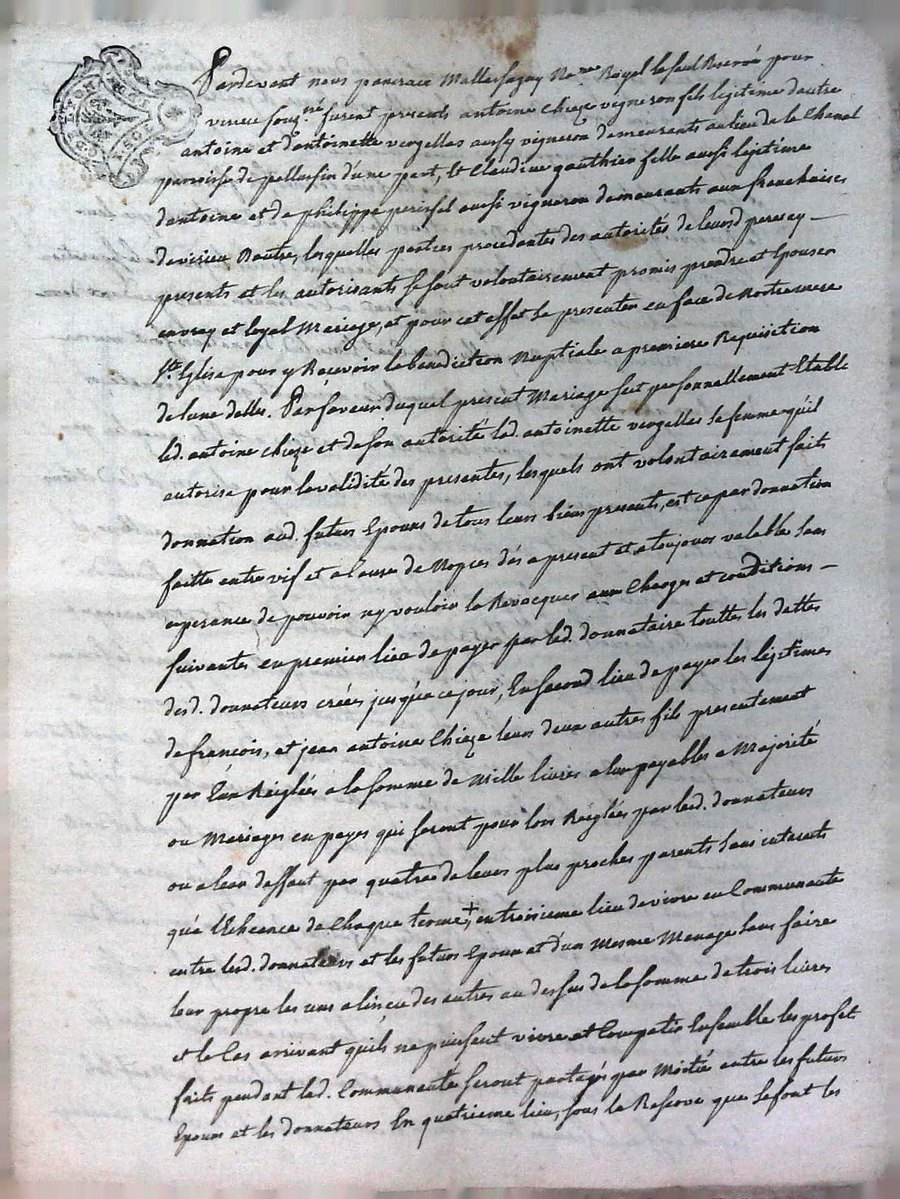 Pardevant nous pancrace Mallassagny No.re Royal le seul Reservé pour
verieu sous.né furent presents antoine Chieze vigneron fils legitime d'autre
antoine et d'antoinette vergellas aussy vigneron demeurants au lieu de la Chenal
parroisse de pellussin d'une part, Et Claudine gauthier fille aussi legitime
d'antoine et de philippe perissel aussi vigneron demeurants aux franchaises
de verieu D'autre, lesquelles parties procedantes des autorités de leursd peres cy —
presents et les autorisants se sont volontairement promis prendre et Epouser
en vray et loyal Mariage, et pour cet effet se presenter en face de Notre mere
Ste Eglise pour y Recevoir la benediction Nuptiale a premiere Requisition
de l'une d'elles. Par faveur duquel present Mariage s'est personnellement Etably
led. antoine chieze et de son autorité lad. antoinette vergellas sa femme qu'il
autorise pour la validité des presentes, lesquels ont volontairement fait
donnation aud. futur Epoux de tous leurs biens presents, est ce par donnation
faitte entre vif et a cause de Nopces dès a present et a toujours valable sans
esperance de pouvoir ny vouloir la Revocquer aux Charges et conditions —
suivantes en premier lieu de payer par led. donnataire touttes les dettes
desd. donnateurs créés jusqu'a ce jour, En second lieu de payer les légitimes
de françois, et jean antoine Chieze leurs deux autres fils presentement
par Eux Réiglées a la somme de Mille livres a eux payables a Majorité
ou Mariages en payes qui seront pour lors Reiglées par lesd. donnateurs
ou a leur deffaut par quatre de leurs plus proches parents sans interests
qu'a l'Echeance de Chaque terme, + en troisieme lieu de vivre en Communauté
entre lesd. donnateurs et les futurs Epoux et d'un Mesme Menage sans faire
leur propre les uns a l'inçu des autres au dessus de la somme de trois livres
et le Cas arrivant qu'ils ne puissent vivre et Compatir Ensemble les profits
faits pendant lad. Communauté seront partagés par Moitié entre les futurs
Epoux et les donnateurs En quatrieme lieu, sous la Reserve que se font les